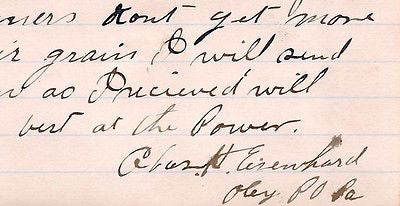 mers dont get more
ir grain I will send
as I recieved will
best at the Power.
Chas. H. Eisenhard
Oley P O Pa